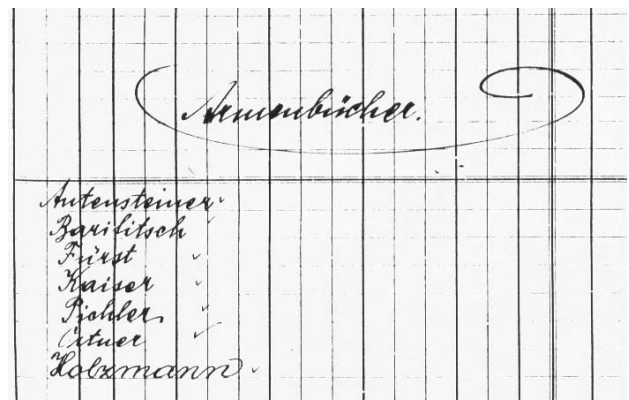 Armenbücher.
Autensteiner
Barilitsch
Fürst
Kaiser
Pichler
Ortner
Holzmann